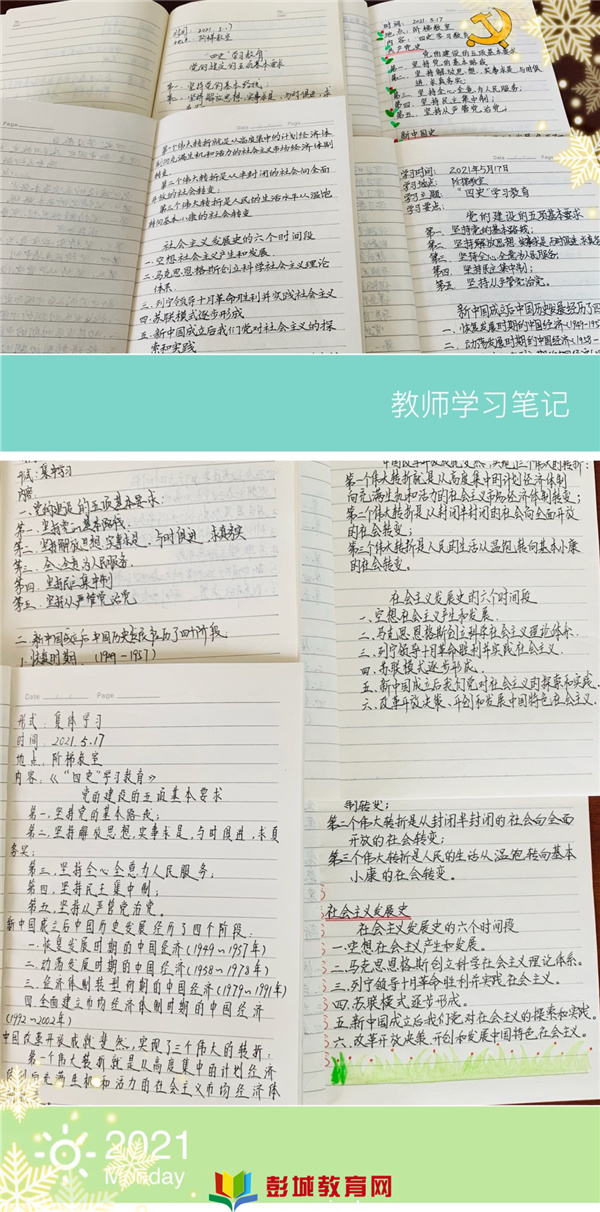 时间: 2021.5.17
地点: 阶梯教室
"四史"学习教育
党的建设的五项基本要求
第一. 坚持党的基本路线.
第二. 坚持解放思想, 实事求是, 与时俱进, 求
时间: 2021.5.17
地点: 阶梯教室
内容: 四史学习教育
党的建设的五项基本要求
第一. 坚持党的基本路线
第二. 坚持解放思想, 实事求是, 与时俱
进, 求真务实;
第三. 坚持全心全意为人民服务;
第四. 坚持民主集中制;
第五. 坚持从严管党治党.
新中国史
第一个伟大转折就是从高度集中的计划经济体
制向充满生机和活力的社会主义市场经济体制
转变
第二个伟大转折是从半封闭的社会向全面
开放的社会转变;
第三个伟大转折是人民的生活水平从温饱
转向基本小康的社会转变
社会主义发展史的六个时间段
一. 空想社会主义产生和发展.
二. 马克思恩格斯创立科学社会主义理论
体系
三. 列宁领导十月革命胜利并实践社会主义
四. 苏联模式逐步形成
五. 新中国成立后我们党对社会主义的探
索和实践
学习时间: 2021年5月17日
学习地点: 阶梯教室
学习主题: "四史"学习教育
学习要点:
党的建设的五项基本要求
第一. 坚持党的基本路线;
第二. 坚持解放思想, 实事求是, 与时俱进, 求真务
第三. 坚持全心全意为人民服务;
第四. 坚持民主集中制;
第五. 坚持从严管党治党.
新中国成立后中国历史发展经历了四
一. 恢复发展时期的中国经济(1949-195
二. 动荡发展时期的中国经济(1958-
教师学习笔记
形式: 集中学习
内容:
一、党的建设的五项基本要求:
第一. 坚持党的基本路线.
第二. 坚持解放思想, 实事求是, 与时俱进, 求真务实
第三. 全心全意为人民服务.
第四. 坚持民主集中制
第五. 坚持从严管党治党
二. 新中国成立后中国历史发展经历了四个阶段
1. 恢复时期. (1949-1957)
第一个伟大转折就是从高度集中的计划经济体制
向充满生机和活力的社会主义市场经济体制转变;
第二个伟大转折是从封闭半封闭的社会向全面开放
的社会转变;
第三个伟大转折是人民的生活从温饱转向基本小康
的社会转变.
社会主义发展史的六个时间段
一、空想社会主义产生和发展.
二、马克思恩格斯创立科学社会主义理论体系.
三、列宁领导十月革命胜利并实践社会主义.
四、苏联模式逐步形成.
五、新中国成立后我们党对社会主义的探索和实践.
六、改革开放决策、开创和发展中国特色社会主义.
Date Page
形式: 集体学习
时间: 2021.5.17
地点: 阶梯教室
内容:《"四史"学习教育》
党的建设的五项基本要求
第一, 坚持党的基本路线;
第二, 坚持解放思想, 实事求是, 与时俱进, 求真
务实;
第三, 坚持全心全意为人民服务;
第四, 坚持民主集中制;
第五, 坚持从严管党治党.
新中国成立后中国历史发展经历了四个阶段:
一. 恢复发展时期的中国经济(1949~1957年)
二. 动荡发展时期的中国经济(1958~1978年)
三. 经济体制转型初期的中国经济(1979~1991年)
四. 全面建立市场经济体制时期的中国经济
(1992~2002年)
中国改革开放成就斐然, 实现了三个伟大的转折:
第一个伟大转折就是从高度集中的计划经济
体制向充满生机和活力的社会主义市场经济体
制转变;
第二个伟大转折是从封闭半封闭的社会向全面
开放的社会转变;
第三个伟大转折是人民的生活从温饱转向基本
小康的社会转变。
社会主义发展史
社会主义发展史的六个时间段
一. 空想社会主义产生和发展。
二. 马克思恩格斯创立科学社会主义理论体系.
三. 列宁领导十月革命胜利并实践社会主义。
四. 苏联模式逐步形成。
五. 新中国成立后我们党对社会主义的探索和实践。
六. 改革开放决策、开创和发展中国特色社会主义。
2021
Monday
彭城教育网